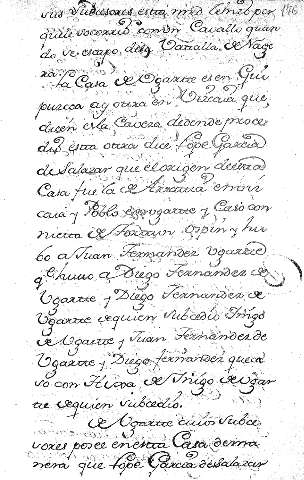 sus subcesores esta mrd le hizo por
que le socorrio con un Cavallo quan
do se escapo dela Batalla de Nage
ra. 176
la Casa de Ugarte es en Gui
puzcoa ay otra en Vizcaia que
dicen es la Cavera de donde proce
dio esta otra dice Lope Garcia
de Salazar que el origen de esta
Casa fue la de Arzauia en Viz
caia y Poblo en Ugarte y Caso con
nieta de Fortun Ospin y hu
bo a Juan Fernandez Ugarte
q.e hubo a Diego Fernandez de
Ugarte y Diego Fernandez de
Ugarte de quien subcedio Iñigo
de Ugarte y Juan Fernandez de
Ugarte y Diego fernandez que ca
so con hija de Iñigo de Ugar
te de quien subcedio.
de Ugarte cuios subce
sores posee en esta Casa de ma
nera que Lope Garcia de Salazar